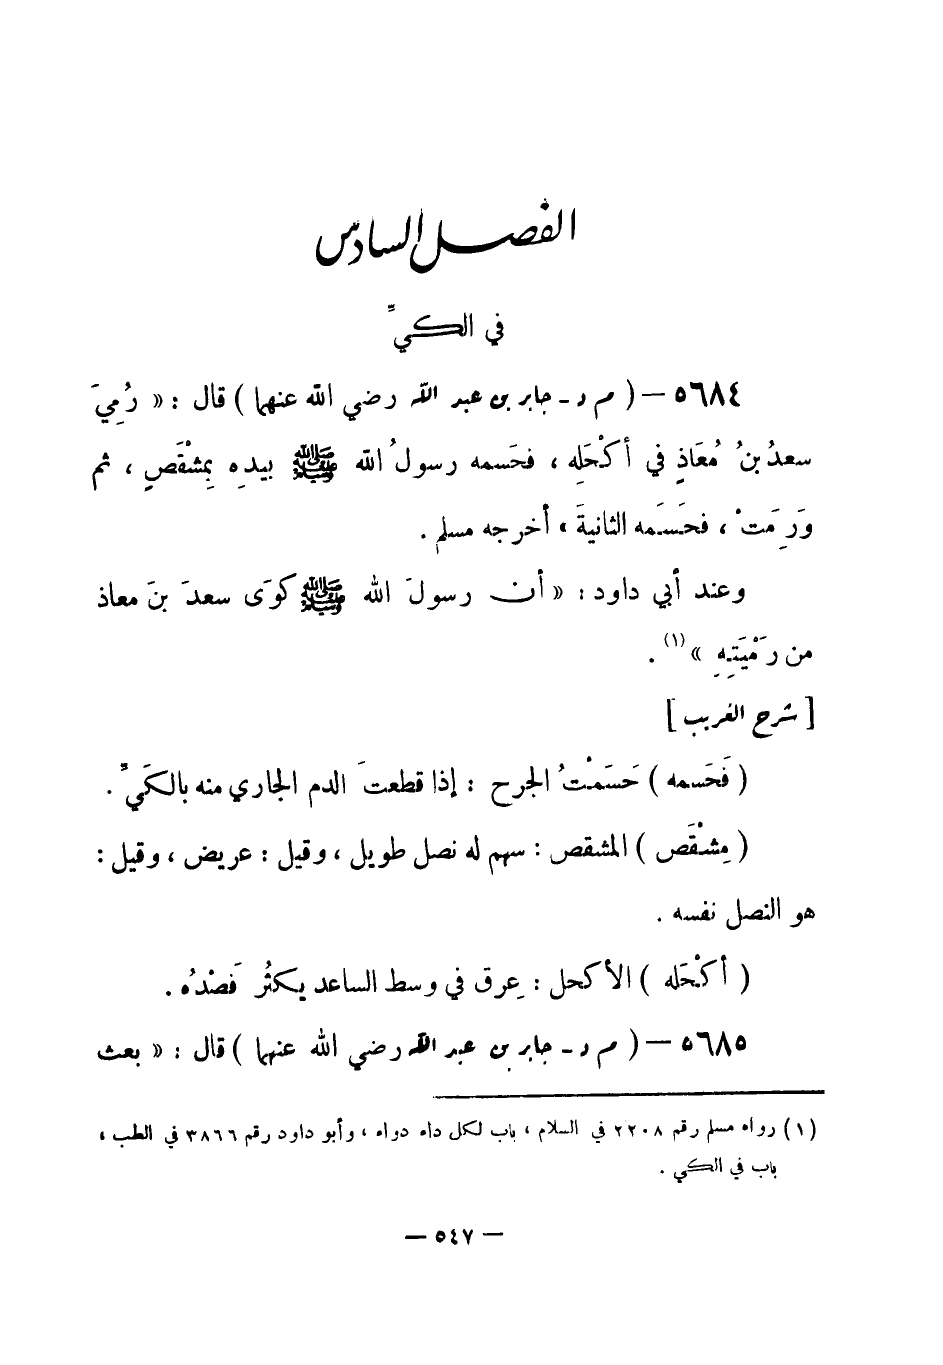 الفصل السادس
في الكيِّ
٥٦٨٤ – ( م د - جابر بن عبد الله رضي الله عنهما ) قال : « رُمِيَ
سعدُ بنُ مُعَاذٍ في أكْحَلِهِ ، فحَسمه رسولُ الله ﷺ بيدِهِ بِمشْقَصٍ ، ثم
وَرِمَتْ ، فحَسَمه الثانيةَ » أخرجه مسلم .
وعند أبي داود : « أن رسولَ الله ﷺ كوَى سعدَ بنَ معاذ
من رَمْيَتِهِ » (١) .
[ شرح الغريب ]
( فَحَسمه ) حَسَمْتُ الجرح : إذا قطعتَ الدم الجاري منه بالكَيِّ .
( مِشْقَص ) المشقص : سهم له نصل طويل ، وقيل : عريض ، وقيل :
هو النصل نفسه .
( أكْحَله ) الأكحل : عِرق في وسط الساعد يكثُر فَصْدُه .
٥٦٨٥ – ( م د - جابر بن عبد الله رضي الله عنهما ) قال : « بعث
(١) رواه مسلم رقم ٢٢٠٨ في السلام ، باب لكل داء دواء ، وأبو داود رقم ٣٨٦٦ في الطب ،
باب في الكي .
– ٥٤٧ –